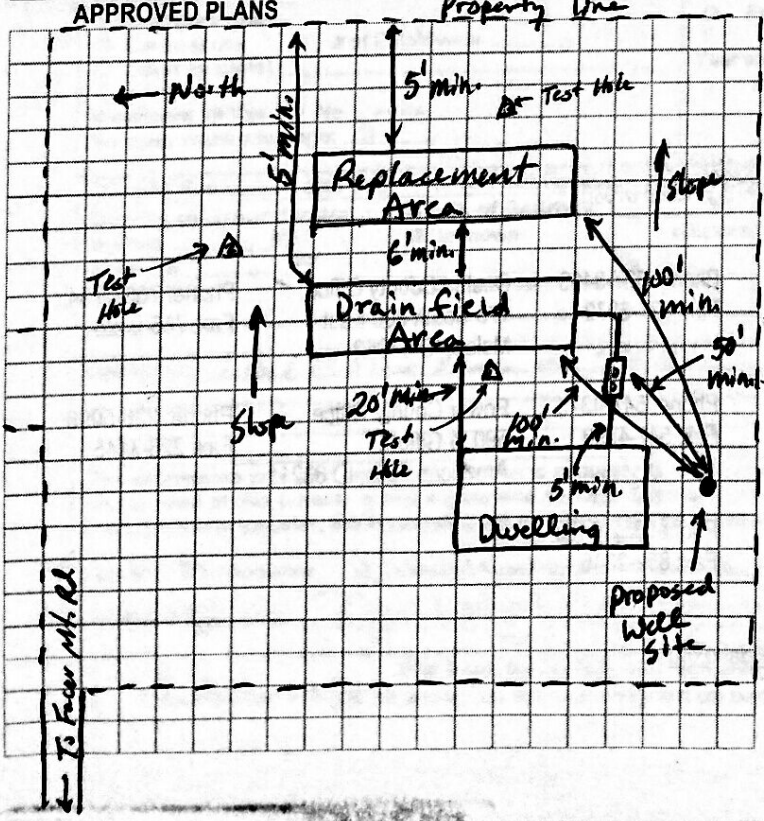 APPROVED PLANS
Property Line
← North
5' min.
5' min.
Test Hole
Replacement
Area
Slope
6' min.
Test
Hole
100'
min.
Drain field
Area
50'
min.
Slope
20' min.
Test
Hole
100'
min.
5' min
Dwelling
proposed
Well
Site